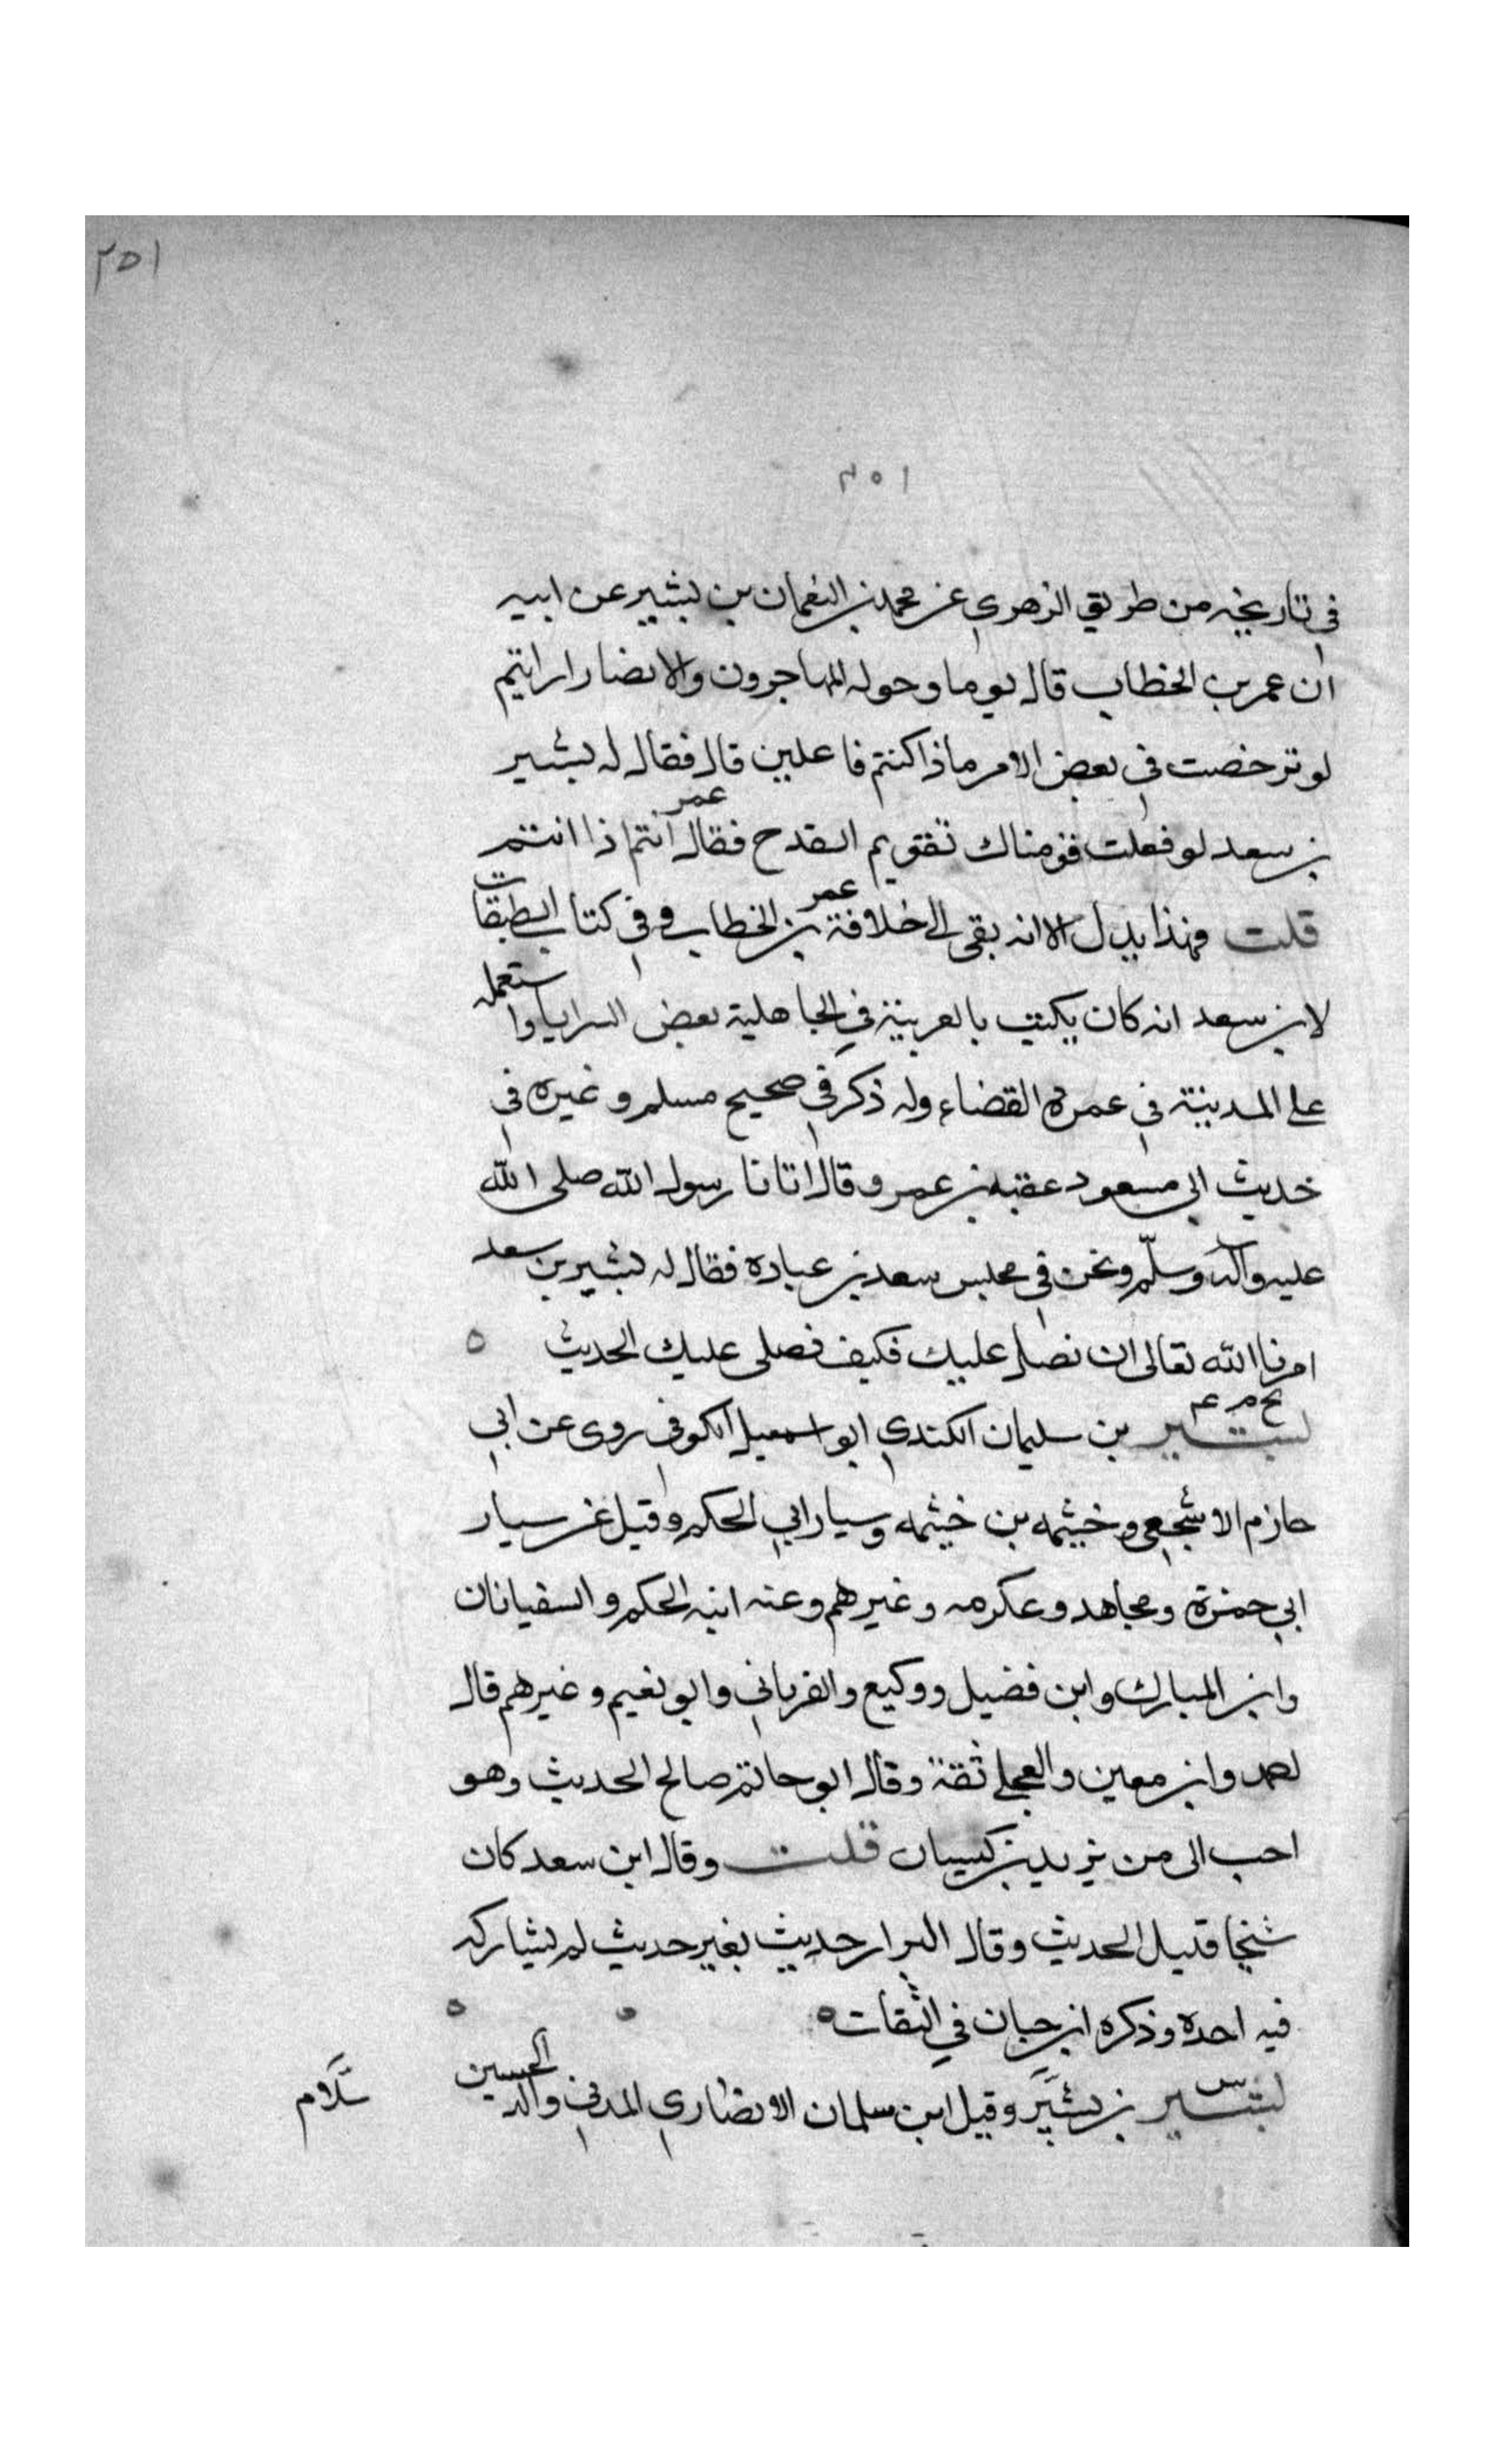 ٢٥١
٢٥١
في تاريخه من طريق الزهري عن محمد بن النعمان بن بشير عن ابيه
ان عمر بن الخطاب قال يوما وحوله المهاجرون والانصار ارايتم
لو ترخصت في بعض الامر ماذا كنتم فاعلين قال فقال له بشير
بن سعد لو فعلت قومناك تقويم القدح فقال عمر انتم اذا انتم
قلت فهذا يدل الا انه بقى الى خلافة عمر بن الخطاب وفي كتاب الطبقات
لابن سعد انه كان يكتب بالعربية في الجاهلية بعض السرايا واستعمله
على المدينة في عمرة القضاء وله ذكر في صحيح مسلم وغيره في
حديث ابي مسعود عقبه بن عمرو قال اتانا رسول الله صلى الله
عليه وآله وسلّم ونحن في مجلس سعد بن عباده فقال له بشير بن سعد
امرنا الله تعالى ان نصلى عليك فكيف نصلى عليك الحديث ٥
بخ م عم
بشير بن سليمان الكندي ابو اسمعيل الكوفي روى عن ابي
حازم الاشجعي وخيثمه بن خيثمه وسيار ابي الحكم وقيل عن سيار
ابي حمزة ومجاهد وعكرمه وغيرهم وعنه ابنه الحكم والسفيانان
وابن المبارك وابن فضيل ووكيع والفريابي وابو نعيم وغيرهم قال
احمد وابن معين والعجلي ثقة وقال ابو حاتم صالح الحديث وهو
احب الى من يزيد بن كيسان قلت وقال ابن سعد كان
شيخا قليل الحديث وقال البزار حديث بغير حديث لم يشاركه
فيه احده وذكره ابن حبان في الثقات ٥ ٥ ٥
س
بشير بن بشير وقيل ابن سلمان الانصاري المدني والد الحسين
سّلام